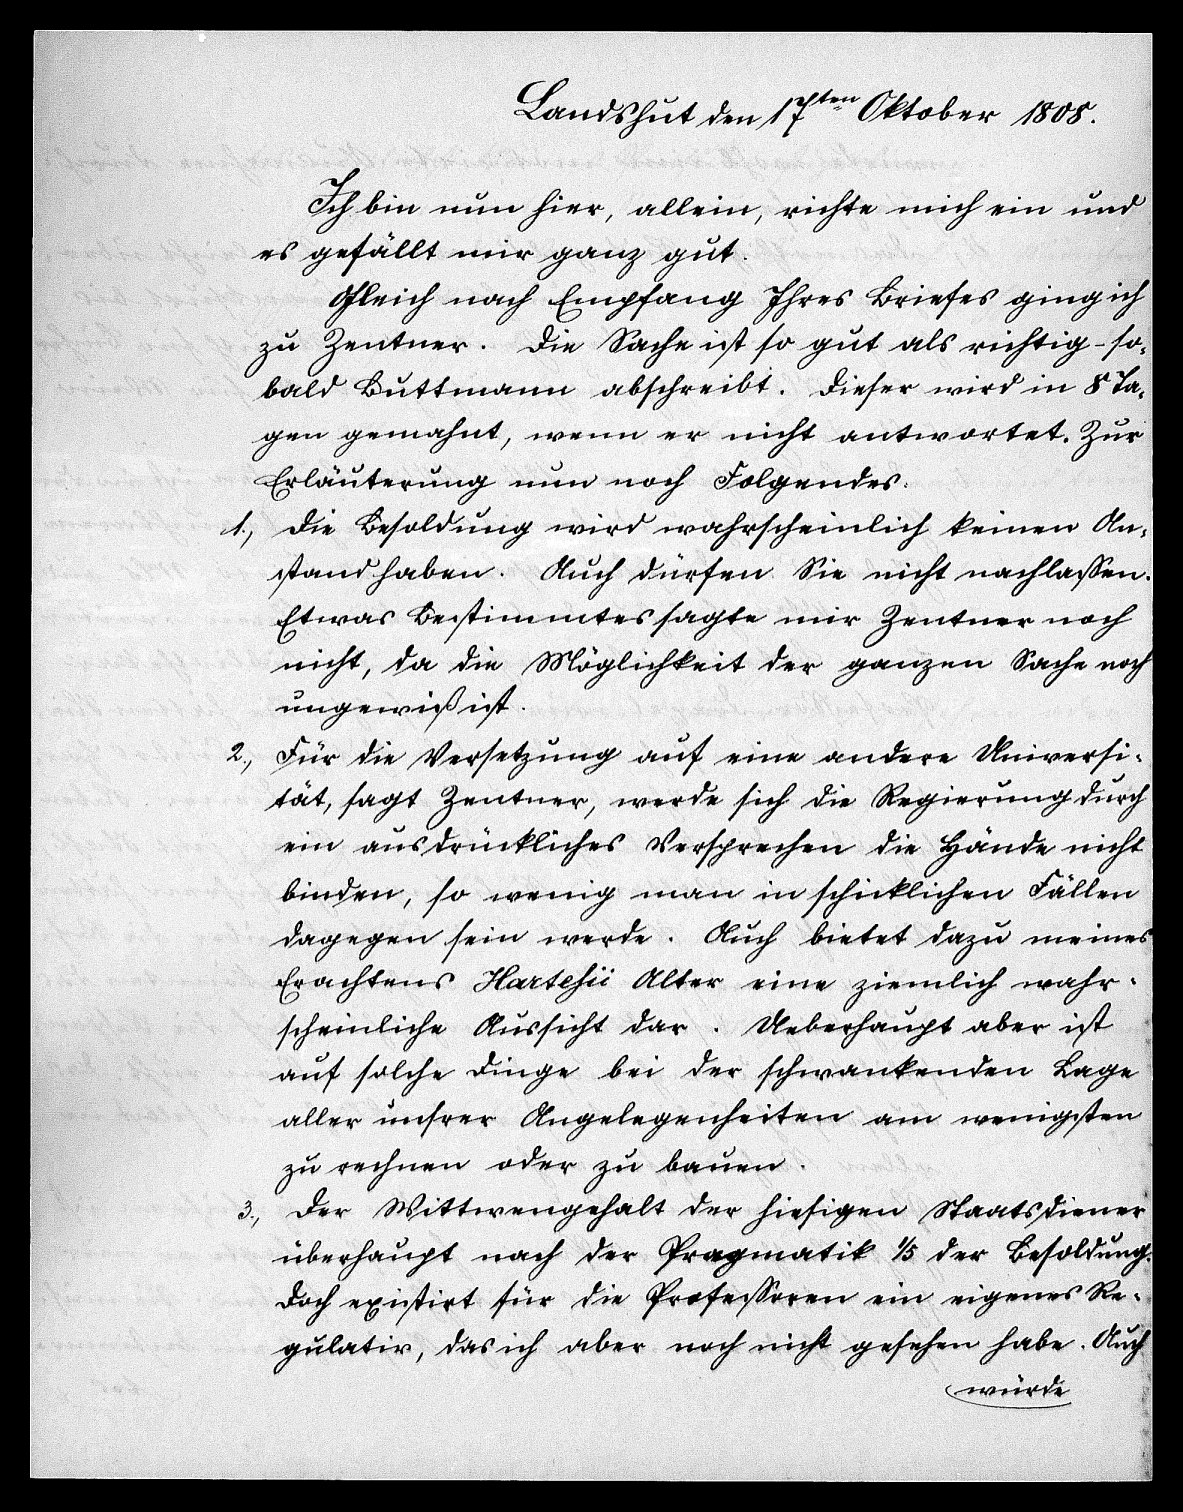 Landshut den 17ten Oktober 1808.
Ich bin nun hier, allein, richte mich ein und
es gefällt mir ganz gut.
Gleich nach Empfang Ihres Briefes ging ich
zu Zentner. Die Sache ist so gut als richtig - so-
bald Buttmann abschreibt. Dieser wird in 8 Ta-
gen gemahnt, wenn er nicht antwortet. Zur
Erläuterung nun noch Folgendes.
1., Die Besoldung wird wahrscheinlich keinen An-
stand haben. Auch dürfen Sie nicht nachlassen.
Etwas Bestimmtes sagte mir Zentner noch
nicht, da die Möglichkeit der ganzen Sache noch
ungewiß ist.
2., Für die Versetzung auf eine andere Universi-
tät, sagt Zentner, werde sich die Regierung durch
ein ausdrückliches Versprechen die Hände nicht
binden, so wenig man in schicklichen Fällen
dagegen sein werde. Auch bietet dazu meines
Erachtens Alter eine ziemlich wahr-
scheinliche Aussicht dar. Ueberhaupt aber ist
auf solche Dinge bei der schwankenden Lage
aller unsrer Angelegenheiten am wenigsten
zu rechnen oder zu bauen.
3., Der Wittwengehalt der hiesigen Staatsdiener
überhaupt nach der Pragmatik 1/5 der Besoldung.
Doch existirt für die Professoren ein eigenes Re-
gulativ, das ich aber noch nicht gesehen habe. Auch
würde